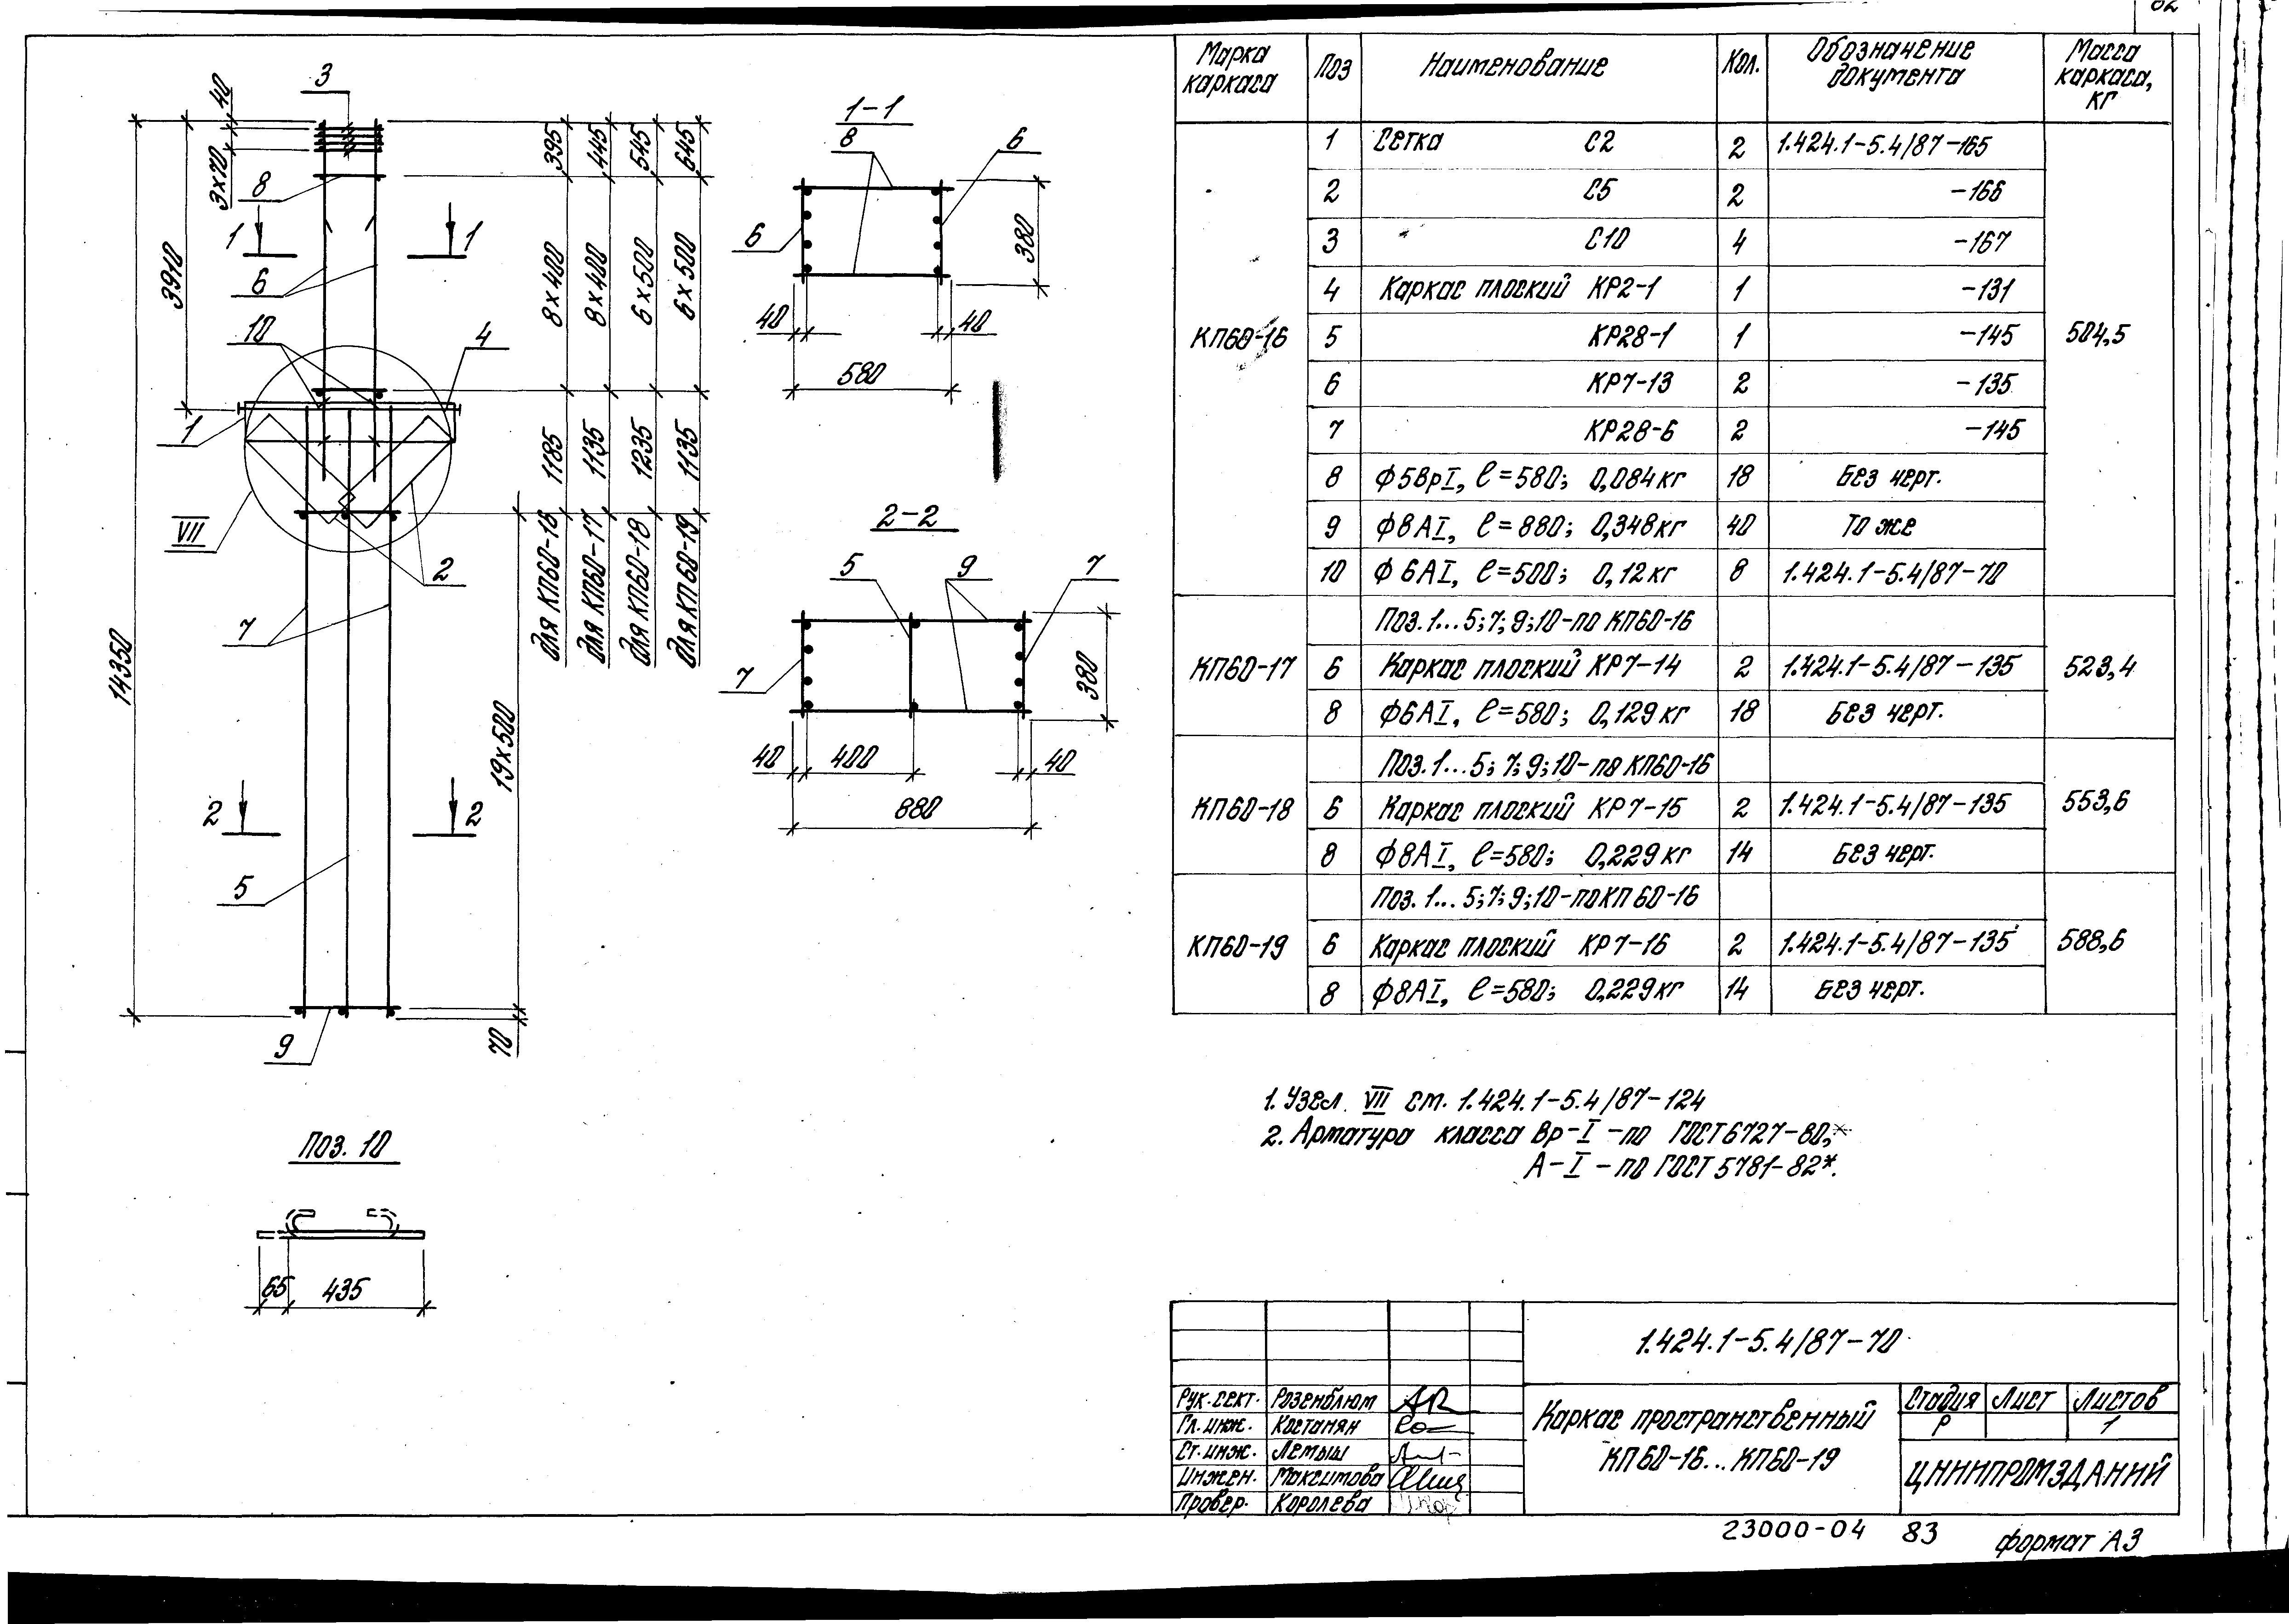 Марка каркаса | Поз | Наименование | Кол. | Обозначение документа | Масса каркаса, кг
КП60-16 | 504,5
1 | Сетка С2 | 2 | 1.424.1-5.4/87-165
2 | С5 | 2 | -166
3 | С10 | 4 | -167
4 | Каркас плоский КР2-1 | 1 | -131
5 | КР28-1 | 1 | -145
6 | КР7-13 | 2 | -135
7 | КР28-6 | 2 | -145
8 | ф5ВрI, ℓ=580; 0,084кг | 18 | Без черт.
9 | ф8АI, ℓ=880; 0,348кг | 40 | То же
10 | ф6АI, ℓ=500; 0,12кг | 8 | 1.424.1-5.4/87-70
КП60-17 | 523,4
Поз. 1...5;7;9;10-по КП60-16
6 | Каркас плоский КР7-14 | 2 | 1.424.1-5.4/87-135
8 | ф6АI, ℓ=580; 0,129кг | 18 | Без черт.
КП60-18 | 553,6
Поз. 1...5;7;9;10-по КП60-16
6 | Каркас плоский КР7-15 | 2 | 1.424.1-5.4/87-135
8 | ф8АI, ℓ=580; 0,229кг | 14 | Без черт.
КП60-19 | 588,6
Поз. 1...5;7;9;10-по КП60-16
6 | Каркас плоский КР7-16 | 2 | 1.424.1-5.4/87-135
8 | ф8АI, ℓ=580; 0,229кг | 14 | Без черт.
3
40
3х70
8
1
1
3910
6
10
4
1
VII
2
7
14350
2
2
5
9
19х500
70
395
8х400
1185
для КП60-16
445
8х400
1135
для КП60-17
545
6х500
1235
для КП60-18
645
6х500
1135
для КП60-19
1-1
8
6
6
380
40
40
580
2-2
5
9
7
7
380
40
400
40
880
Поз. 10
65
435
1. Узел VII см. 1.424.1-5.4/87-124
2. Арматура класса Вр-I -по ГОСТ6727-80,*
А-I -по ГОСТ 5781-82*.
1.424.1-5.4/87-70
Рук.сект. Розенблюм
Гл.инж. Костанян
Ст.инж. Лемыш
Инжен. Максимова
Провер. Королева
Каркас пространственный
КП60-16...КП60-19
Стадия Лист Листов
Р 1
ЦНИИПРОМЗДАНИЙ
23000-04 83
формат А3